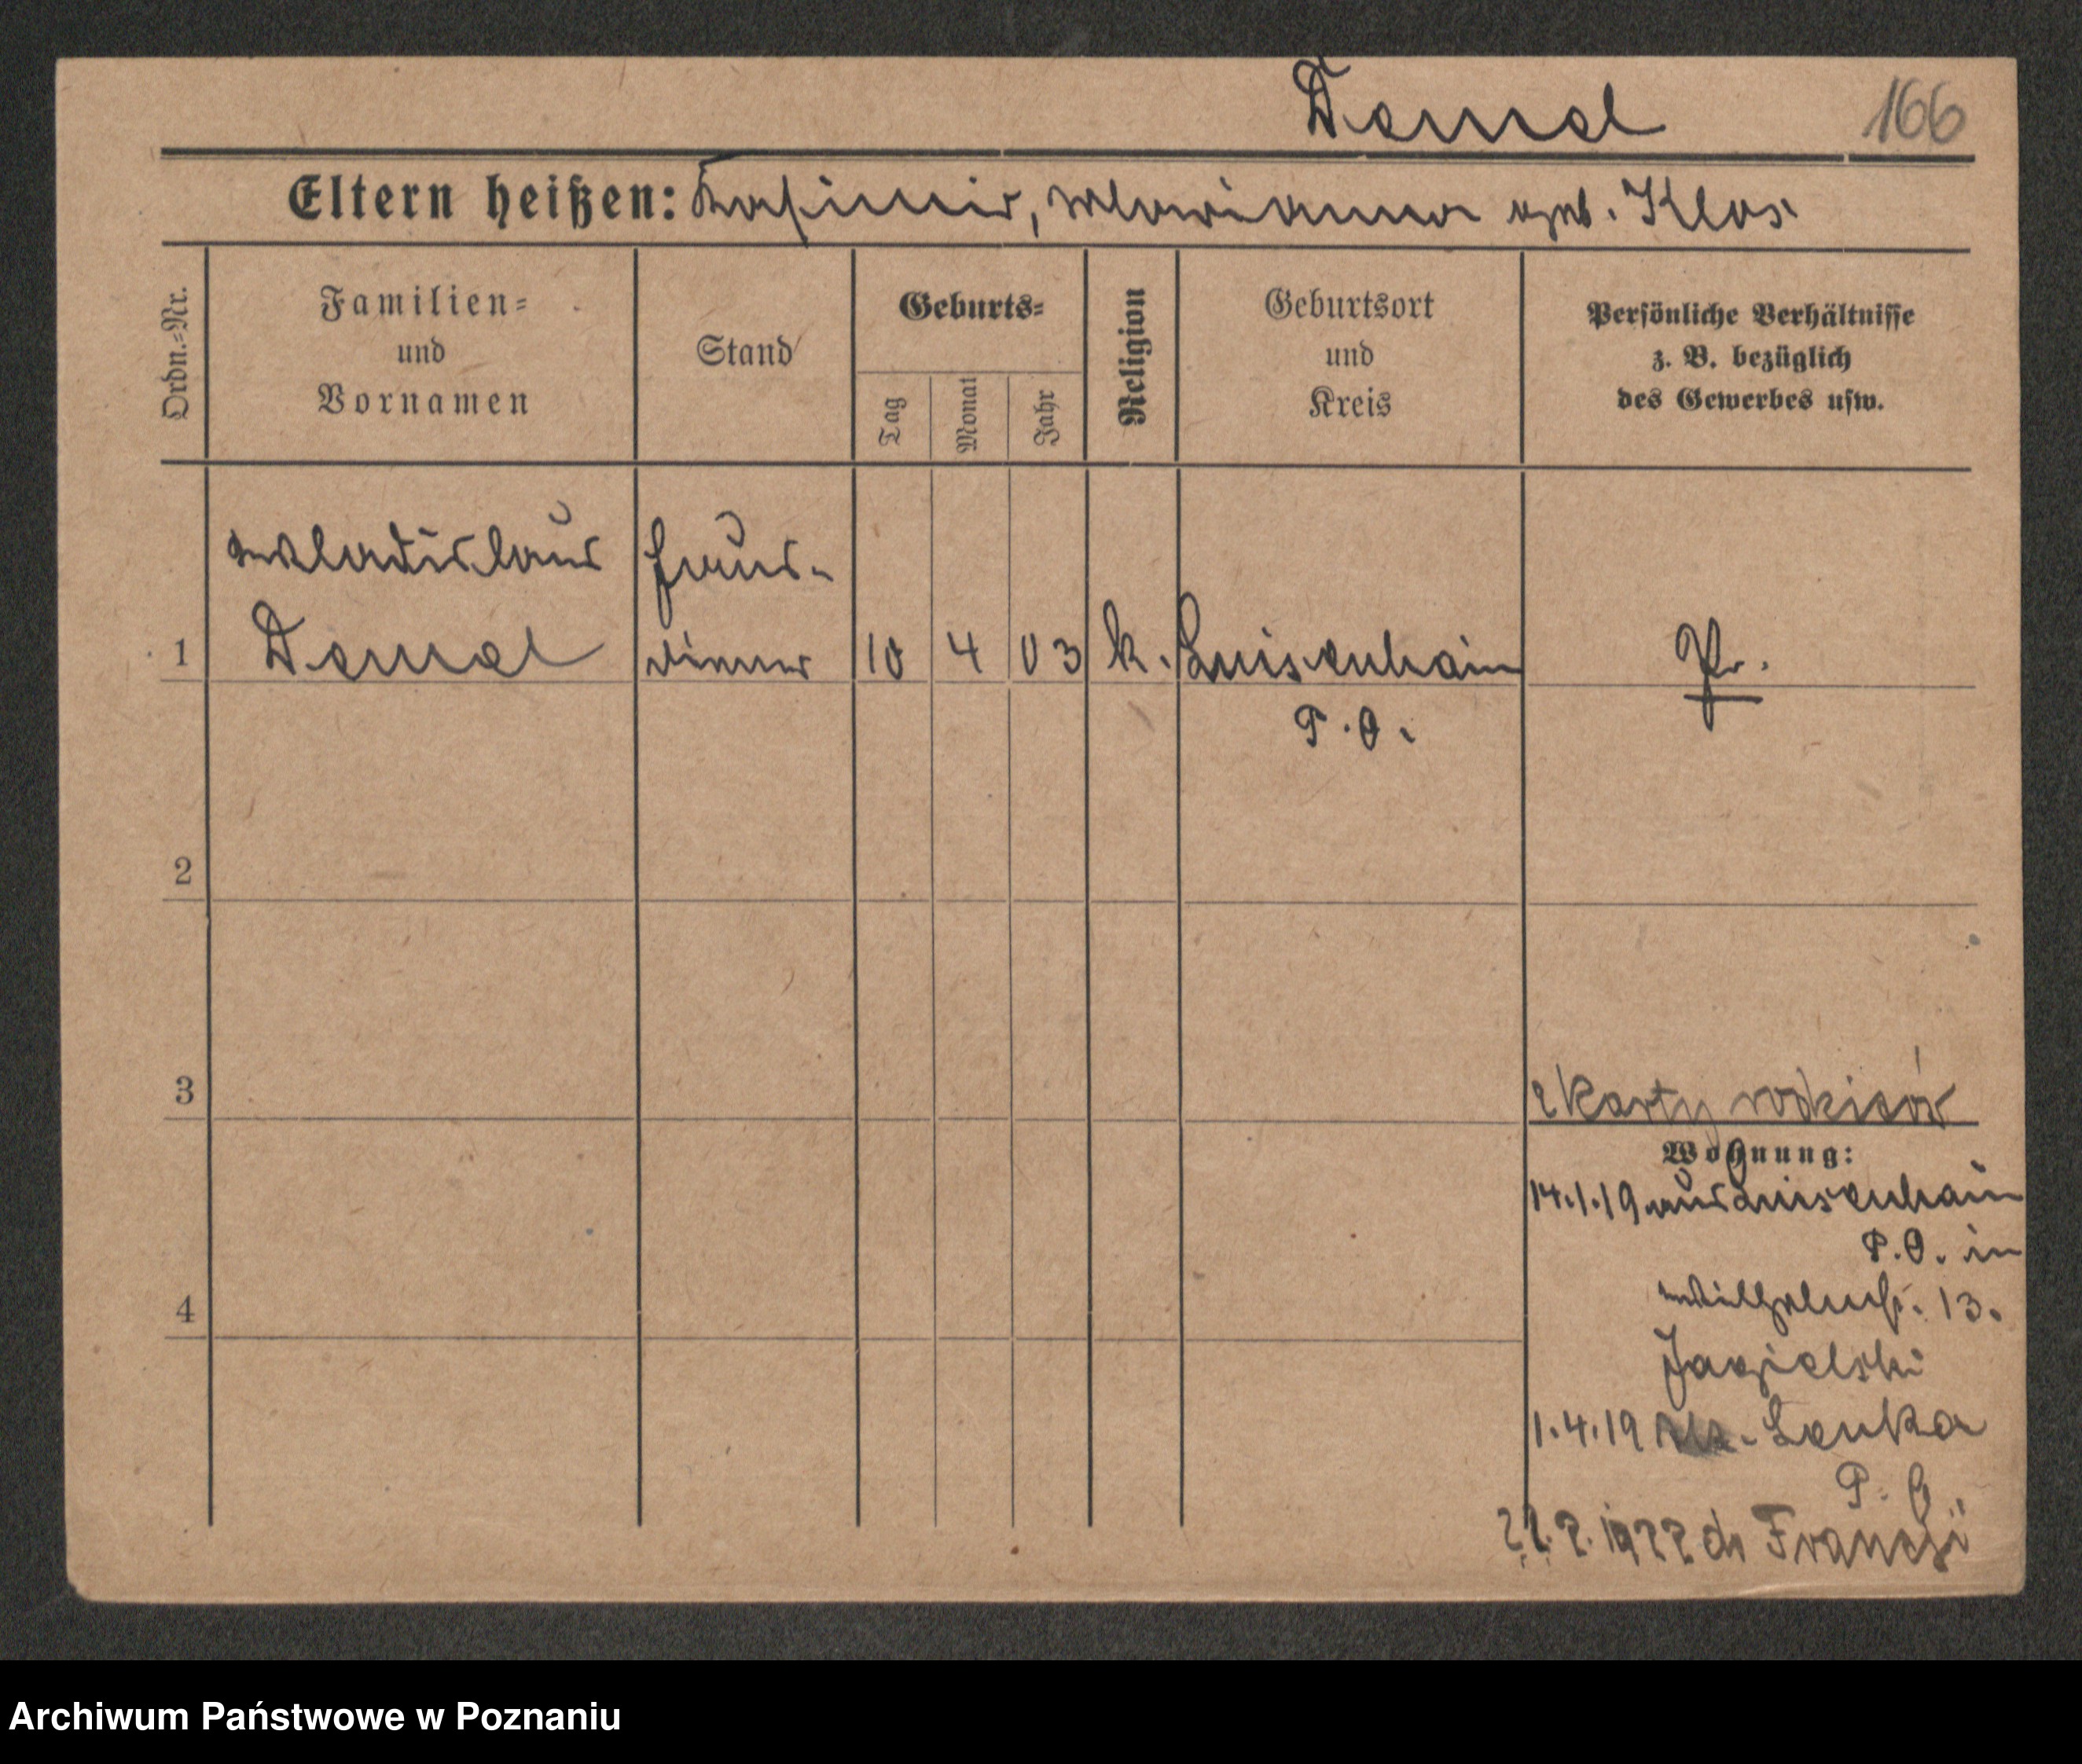 Demel
166
Eltern heißen: Kasimir, Marianna geb. Klos
Ordn.-Nr.
Familien-
und
Vornamen
Stand
Geburts-
Tag
Monat
Jahr
Religion
Geburtsort
und
Kreis
Persönliche Verhältnisse
z. B. bezüglich
des Gewerbes usw.
Wladislaus
Haus-
1 Demel diener 10 4 03 k. Luisenhain Pr.
P. O.
2
3
karty
Wohnung:
14.1.19 aus Luisenhain
P. O. in
Wilhelmstr. 13.
4
Jagielski
1.4.19 Lenka
P. O.
1922 do Francji
Archiwum Państwowe w Poznaniu